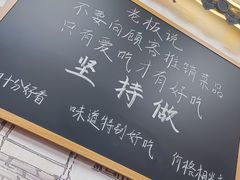 老板说
不要向顾客推销菜品
只有爱吃才有好吃
坚持做
十分好看
味道特别好吃
价格相